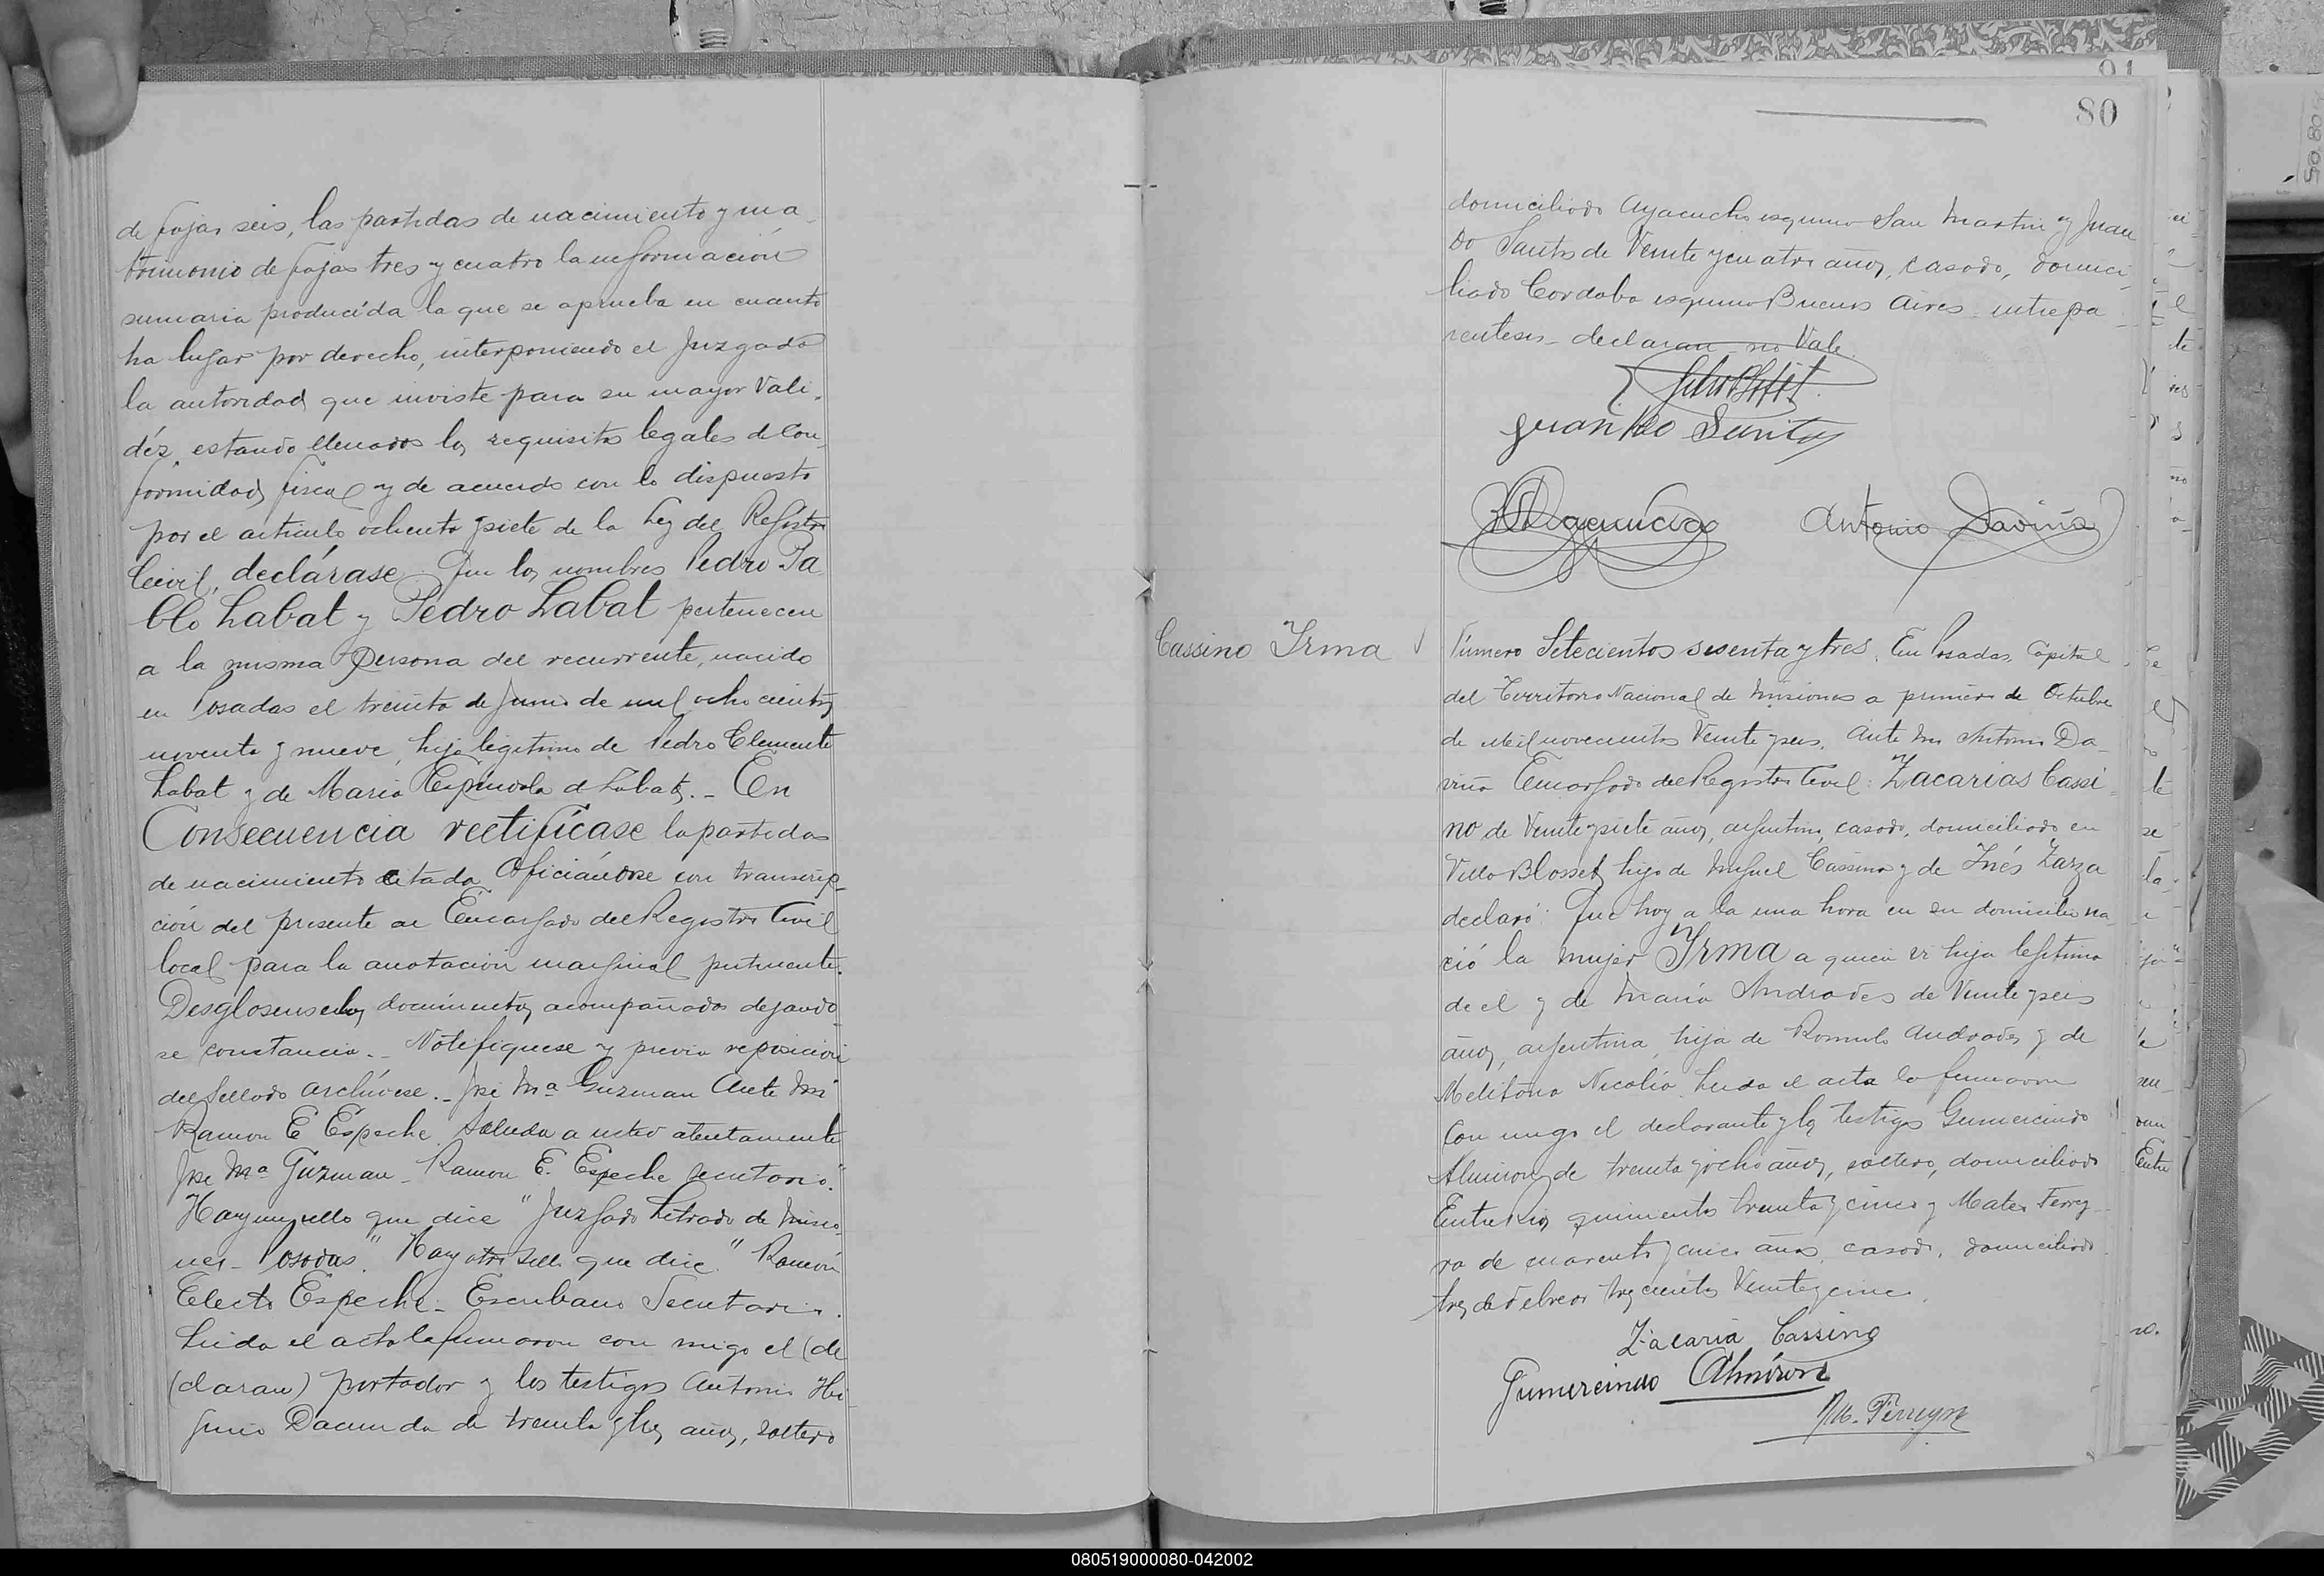 de fojas seis, las partidas de nacimiento y ma-
trimonio de fojas tres y cuatro la información
sumaria producida la que se aprueba en cuanto
ha lugar por derecho, interponiendo el Juzgado
la autoridad que inviste para su mayor Vali-
déz, estando llenados los requisitos legales de Con-
formidad fiscal y de acuerdo con lo dispuesto
por el articulo ochenta y siete de la Ley del Registro
Civil, declárase Que los nombres Pedro Pa
blo Labat y Pedro Labat pertenecen
a la misma Persona del recurrente, nacido
en Posadas el treinta de Junio de mil ochocientos
noventa y nueve, hijo legitimo de Pedro Clemente
Labat y de Maria Espindola de Labat. - En
Consecuencia rectifícase la partida
de nacimiento citada Oficiándose con transcrip-
ción del presente al Encargado del Registro Civil
local para la anotación marginal pertinente.
Desglosense los documentos acompañados dejando-
se constancia. - Notifiquese y previa reposición
del Sellado archívese. - José Mª Guzman Ante Mi
Ramon E Espeche. Saluda a usted atentamente
José Mª Guzman - Ramon E. Espeche secretario."
Hay un sello que dice "Juzgado Letrado de Misio-
nes - Posadas". Hay otro sello que dice "Ramón
Electo Espeche - Escribano Secretario.
Leida el acta la firmaron con migo el (de
(claran) portador y los testigos Antonio Hi-
ginio Dacunda de treinta y tres años, soltero
80
domiciliado Ayacucho esquina San Martin y Juan
Do Santos de Veinte y cuatro años, casado, domici-
liado Cordoba esquina Buenos Aires - entre pa-
rentesis - declaran no Vale.
Juan Do Santos
Antonio Daviña
Cassino Irma
Número Setecientos sesenta y tres. En Posadas, Capital
del Territorio Nacional de Misiones a primero de Octubre
de Mil novecientos Veinte y seis. Ante mi Antonio Da-
viña Encargado del Registro Civil: Zacarias Cassi-
no de Veinte y siete años, argentino, casado, domiciliado en
Villa Blosset, hijo de Miguel Cassino y de Inés Zarza
declaró: Que hoy a la una hora en su domicilio na-
ció la mujer Irma a quien vi hija legitima
de el y de Maria Andrades de Veinte y seis
años, argentina, hija de Romulo Andrades y de
Melitona Nicolia. Leida el acta la firmaron
con migo el declarante y los testigos Gumercindo
Almiron de treinta y ocho años, soltero, domiciliado
Entre Rios quinientos treinta y cinco y Mateo Ferrey-
ra de cuarenta y cinco años, casado, domiciliado
tres de Febrero trescientos Veinte y cinco.
Zacaria Cassino
Gumercindo Almirón
M. Ferreyra
080519000080-042002